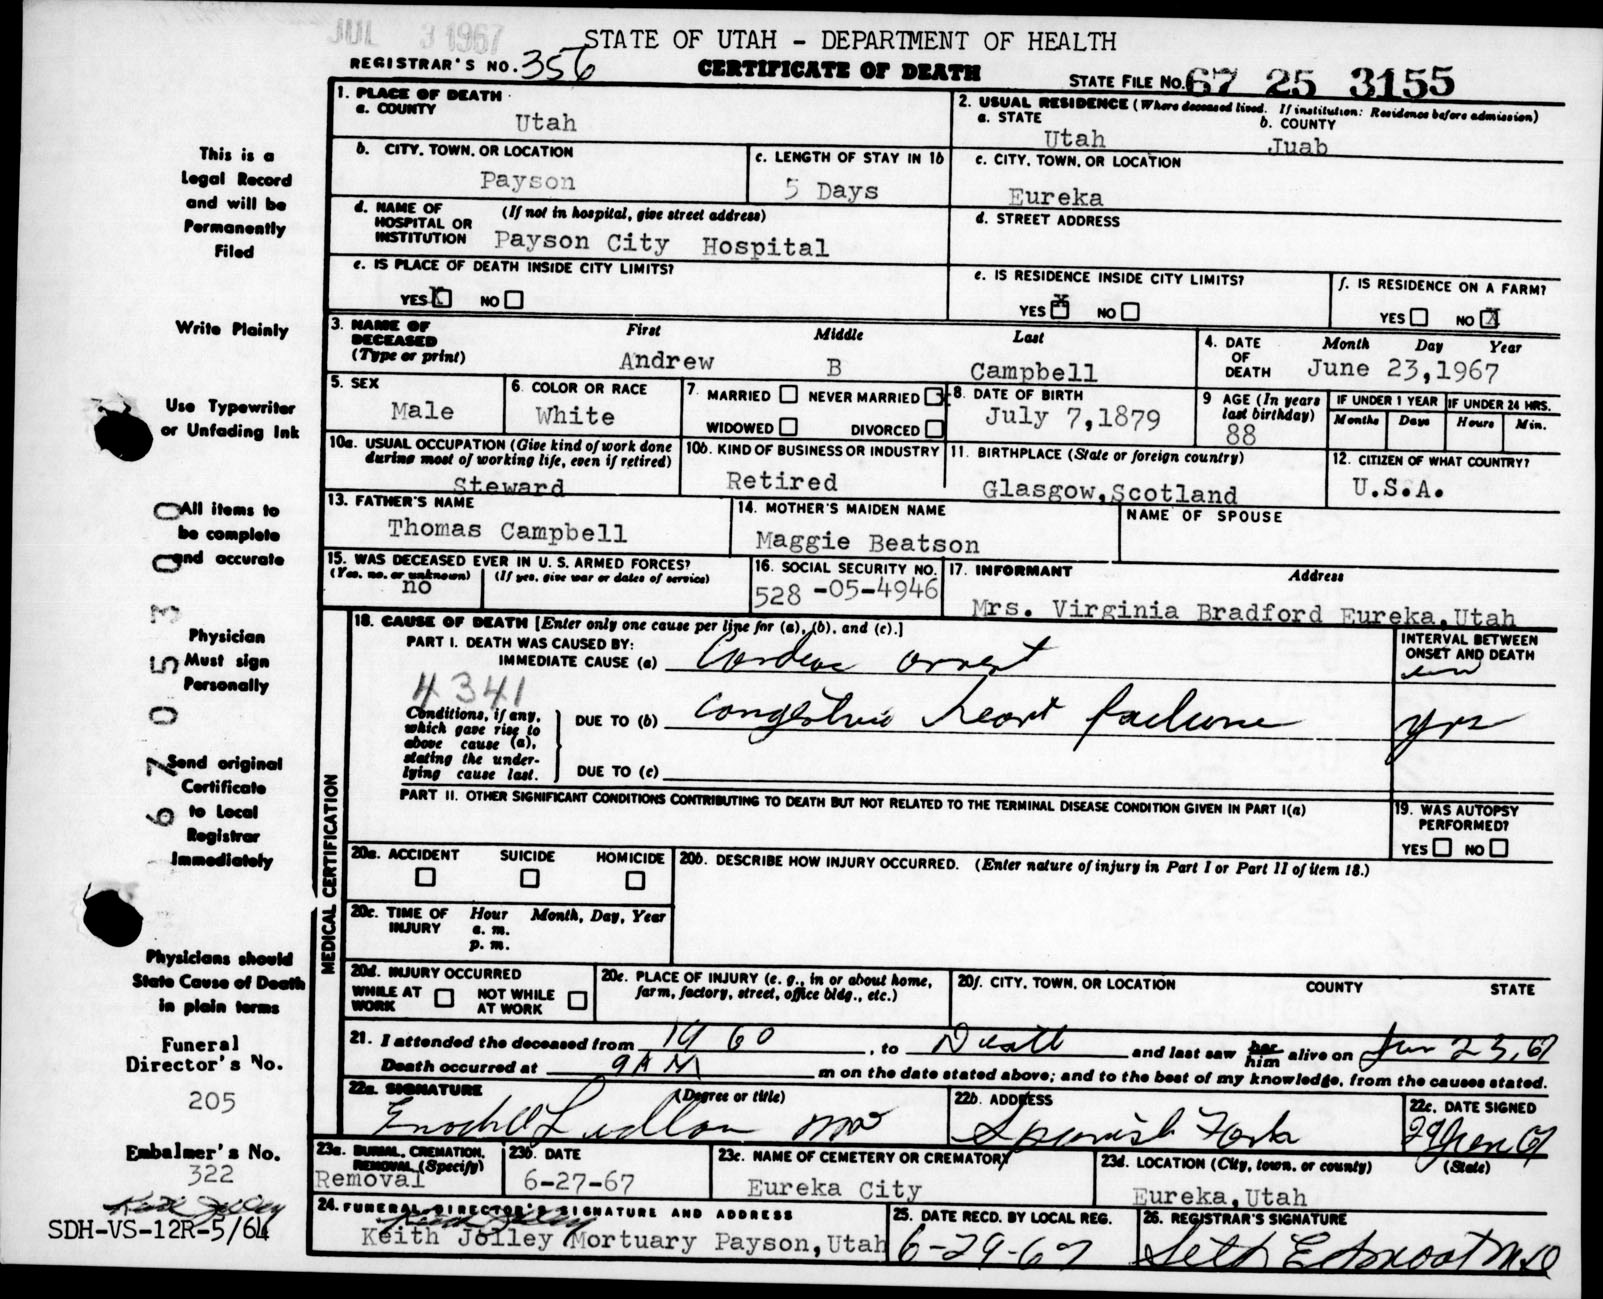 JUL 3 1967
STATE OF UTAH - DEPARTMENT OF HEALTH
REGISTRAR'S NO. 356
CERTIFICATE OF DEATH
STATE FILE NO. 67 25 3155
This is a
Legal Record
and will be
Permanently
Filed
Write Plainly
Use Typewriter
or Unfading Ink
All items to
be complete
and accurate
Physician
Must sign
Personally
Send original
Certificate
to Local
Registrar
Immediately
Physicians should
State Cause of Death
in plain terms
67 053 00
Funeral
Director's No.
205
Embalmer's No.
322
SDH-VS-12R-5/64
1. PLACE OF DEATH
a. COUNTY
Utah
2. USUAL RESIDENCE (Where deceased lived. If institution: Residence before admission)
a. STATE
Utah
b. COUNTY
Juab
b. CITY, TOWN, OR LOCATION
Payson
c. LENGTH OF STAY IN 1b
5 Days
c. CITY, TOWN, OR LOCATION
Eureka
d. NAME OF HOSPITAL OR INSTITUTION (If not in hospital, give street address)
Payson City Hospital
d. STREET ADDRESS
e. IS PLACE OF DEATH INSIDE CITY LIMITS?
YES X NO
e. IS RESIDENCE INSIDE CITY LIMITS?
YES X NO
f. IS RESIDENCE ON A FARM?
YES NO X
3. NAME OF DECEASED (Type or print)
First Middle Last
Andrew B Campbell
4. DATE OF DEATH
Month Day Year
June 23,1967
5. SEX
Male
6. COLOR OR RACE
White
7. MARRIED NEVER MARRIED X
WIDOWED DIVORCED
8. DATE OF BIRTH
July 7,1879
9 AGE (In years last birthday)
88
IF UNDER 1 YEAR
Months Days
IF UNDER 24 HRS.
Hours Min.
10a. USUAL OCCUPATION (Give kind of work done during most of working life, even if retired)
Steward
10b. KIND OF BUSINESS OR INDUSTRY
Retired
11. BIRTHPLACE (State or foreign country)
Glasgow,Scotland
12. CITIZEN OF WHAT COUNTRY?
U.S.A.
13. FATHER'S NAME
Thomas Campbell
14. MOTHER'S MAIDEN NAME
Maggie Beatson
NAME OF SPOUSE
15. WAS DECEASED EVER IN U. S. ARMED FORCES?
(Yes, no, or unknown) (If yes, give war or dates of service)
no
16. SOCIAL SECURITY NO.
528-05-4946
17. INFORMANT Address
Mrs. Virginia Bradford Eureka,Utah
MEDICAL CERTIFICATION
18. CAUSE OF DEATH [Enter only one cause per line for (a), (b), and (c).]
PART I. DEATH WAS CAUSED BY:
IMMEDIATE CAUSE (a) Cardiac arrest
INTERVAL BETWEEN ONSET AND DEATH
4341
Conditions, if any, which gave rise to above cause (a), stating the underlying cause last.
DUE TO (b) Congestive heart failure yrs
DUE TO (c)
PART II. OTHER SIGNIFICANT CONDITIONS CONTRIBUTING TO DEATH BUT NOT RELATED TO THE TERMINAL DISEASE CONDITION GIVEN IN PART I(a)
19. WAS AUTOPSY PERFORMED?
YES NO
20a. ACCIDENT SUICIDE HOMICIDE
20b. DESCRIBE HOW INJURY OCCURRED. (Enter nature of injury in Part I or Part II of item 18.)
20c. TIME OF INJURY
Hour Month, Day, Year
a. m.
p. m.
20d. INJURY OCCURRED
WHILE AT WORK NOT WHILE AT WORK
20e. PLACE OF INJURY (e. g., in or about home, farm, factory, street, office bldg., etc.)
20f. CITY, TOWN, OR LOCATION COUNTY STATE
21. I attended the deceased from 1960, to Death and last saw her him alive on Jun 23, 67
Death occurred at 9 AM m on the date stated above; and to the best of my knowledge, from the causes stated.
22a. SIGNATURE (Degree or title)
Ludlow MD
22b. ADDRESS
Spanish Fork
22c. DATE SIGNED
29 June 67
23a. BURIAL, CREMATION, REMOVAL (Specify)
Removal
23b. DATE
6-27-67
23c. NAME OF CEMETERY OR CREMATORY
Eureka City
23d. LOCATION (City, town, or county) (State)
Eureka,Utah
24. FUNERAL DIRECTOR'S SIGNATURE AND ADDRESS
Keith Jolley Mortuary Payson,Utah
25. DATE RECD. BY LOCAL REG.
6-29-67
26. REGISTRAR'S SIGNATURE
Seth E Smoot M.D